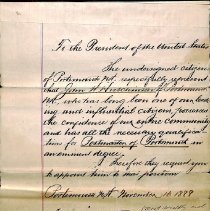 To the President of the United States
The undersigned citizens
of Portsmouth N.H. respectfully represent
that John H. Hutchinson of Portsmouth
N.H. who has long been one of our lead
ing and influential citizens, possesses
the confidence of our entire community
and has all the necessary qualifica
tion for Postmaster of Portsmouth in
an eminent degree.
therefore they request you
to appoint him to that position
Portsmouth N.H. November 10 1889